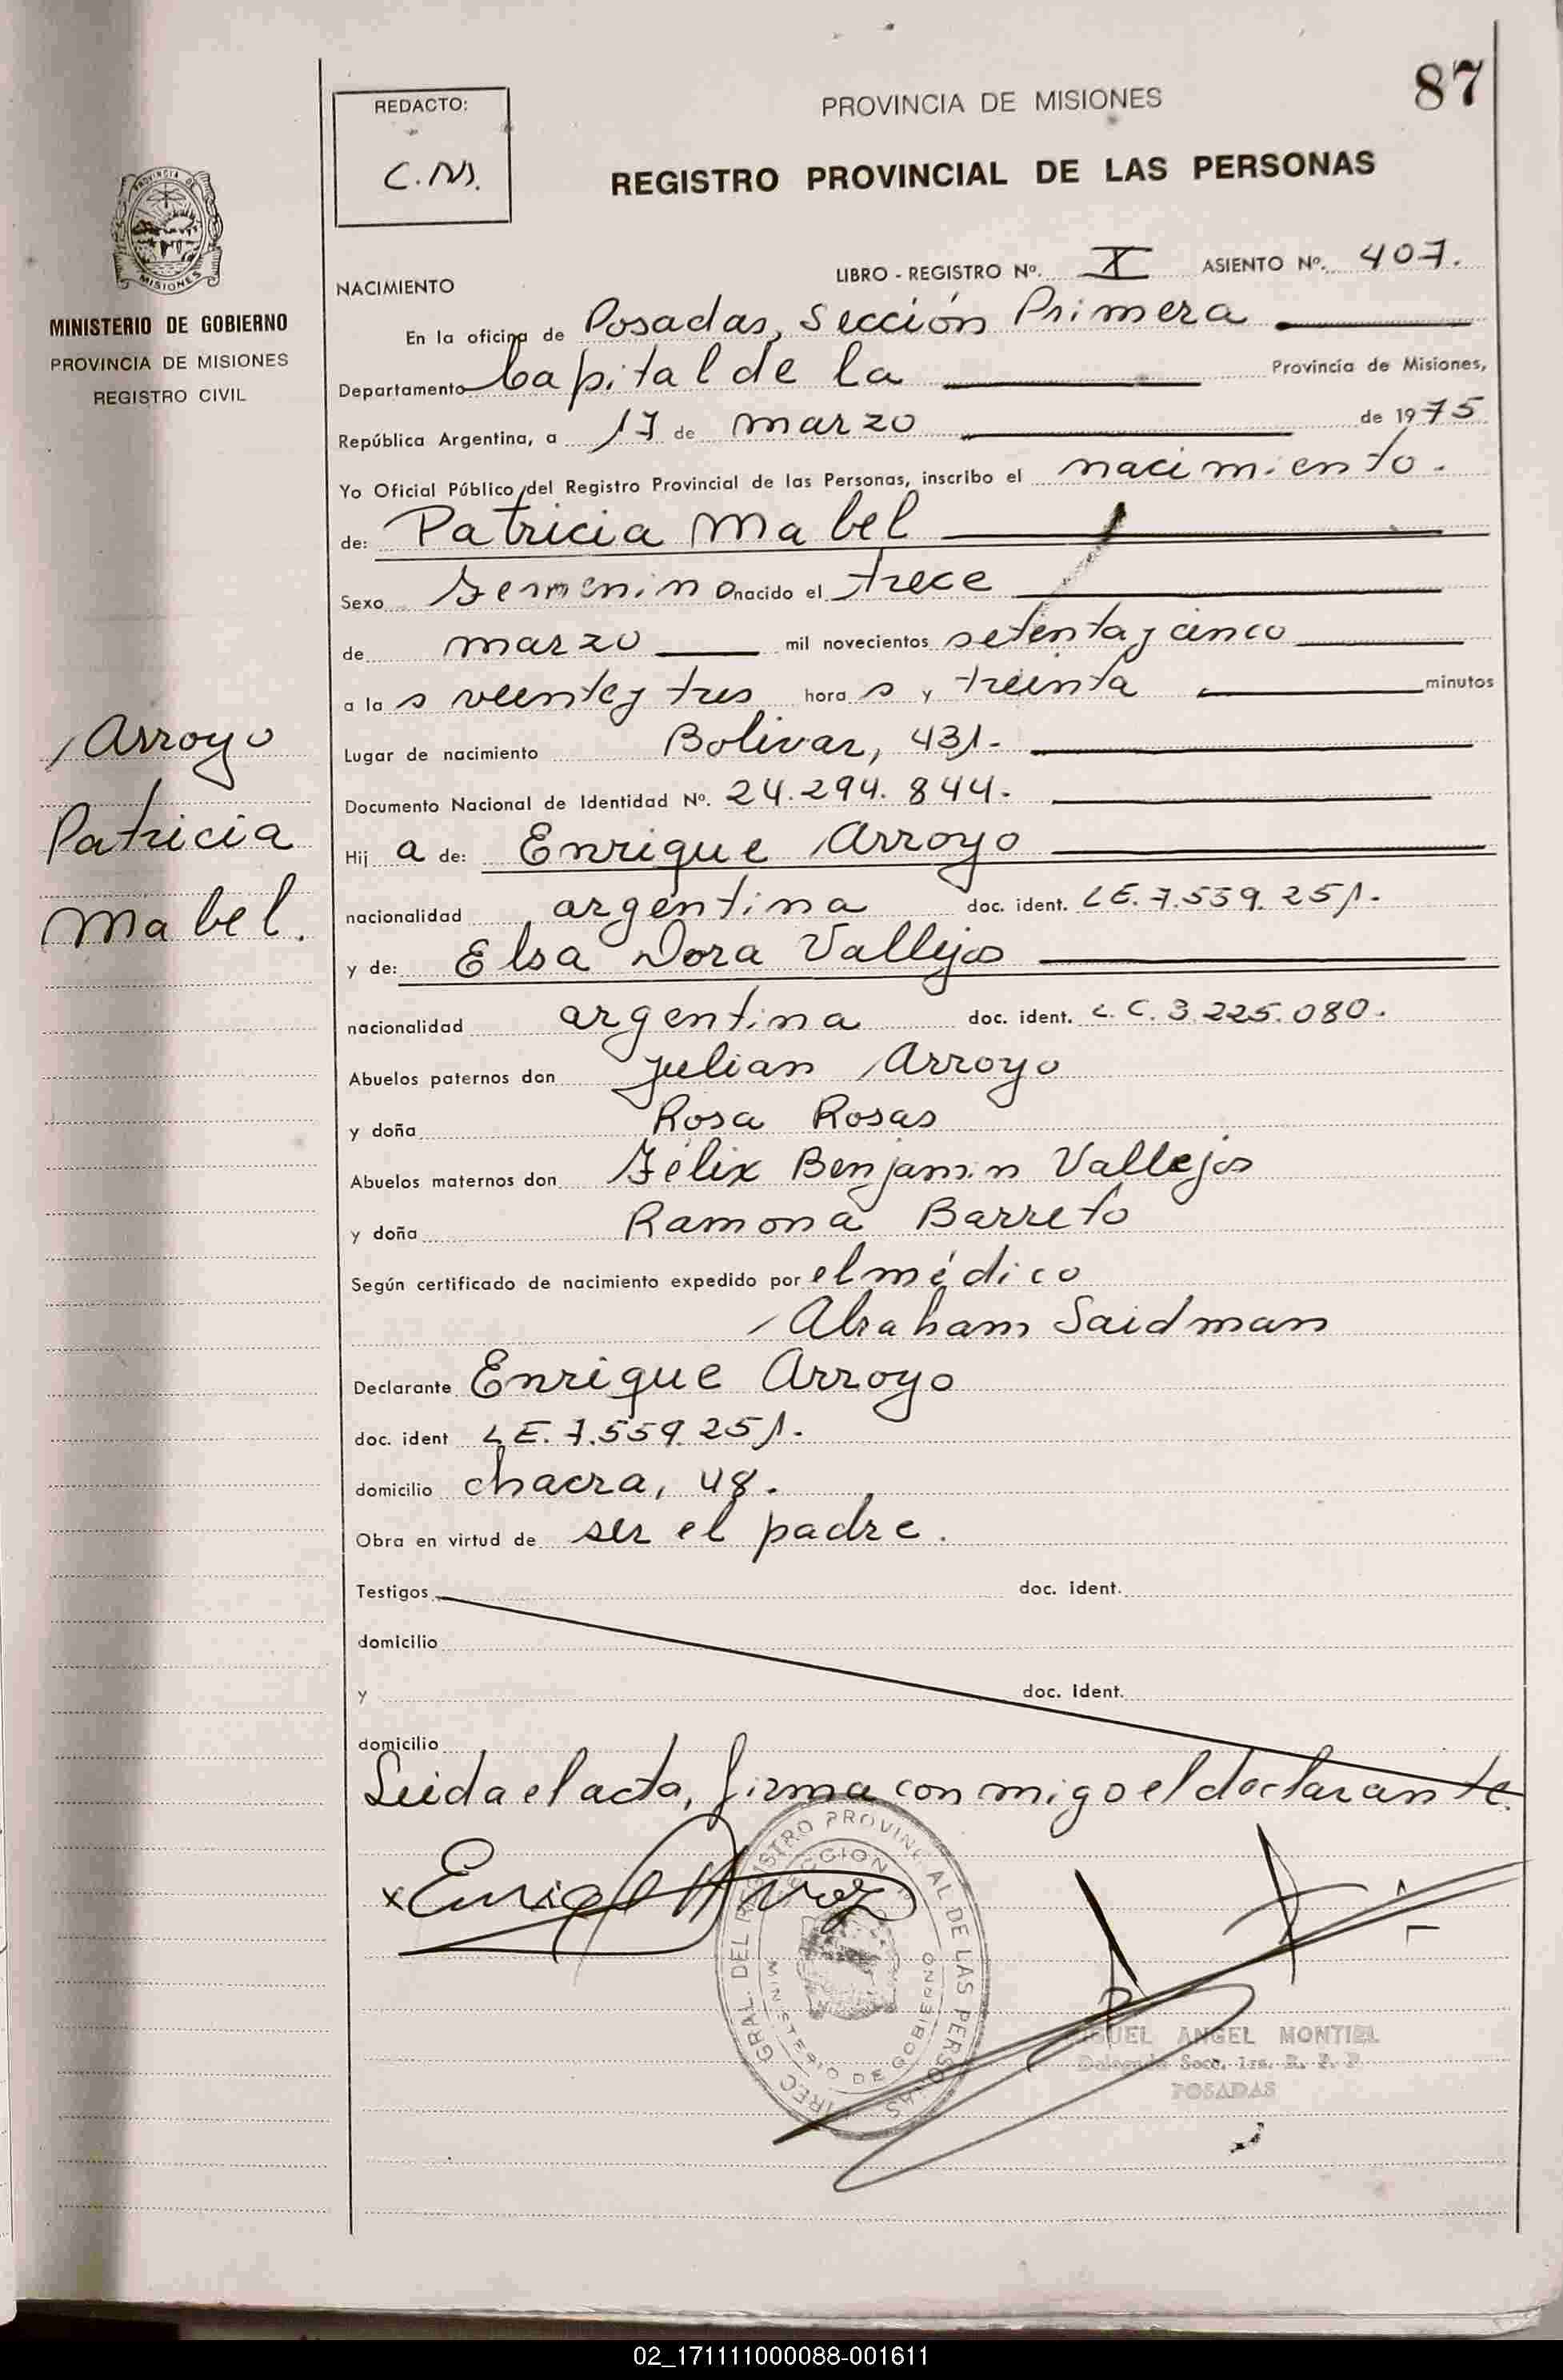 87
REDACTO:
C.N.
PROVINCIA DE MISIONES
REGISTRO PROVINCIAL DE LAS PERSONAS
PROVINCIA DE
MISIONES
MINISTERIO DE GOBIERNO
PROVINCIA DE MISIONES
REGISTRO CIVIL
Arroyo
Patricia
Mabel.
LIBRO - REGISTRO Nº. X ASIENTO Nº. 407.
NACIMIENTO
En la oficina de Posadas, Sección Primera
Departamento Capital de la Provincia de Misiones,
República Argentina, a 17 de marzo de 1975
Yo Oficial Público del Registro Provincial de las Personas, inscribo el nacimiento.
de: Patricia Mabel
Sexo Femenino nacido el trece
de marzo mil novecientos setenta y cinco
a la s veinte y tres hora s y treinta minutos
Lugar de nacimiento Bolivar, 431.
Documento Nacional de Identidad Nº. 24.294.844.
Hij a de: Enrique Arroyo
nacionalidad argentina doc. ident. LE. 7.559.251.
y de: Elsa Dora Vallejos
nacionalidad argentina doc. ident. L.C. 3.225.080.
Abuelos paternos don Julian Arroyo
y doña Rosa Rosas
Abuelos maternos don Félix Benjamin Vallejos
y doña Ramona Barreto
Según certificado de nacimiento expedido por el médico
Abraham Saidman
Declarante Enrique Arroyo
doc. ident LE. 7.559.251.
domicilio chacra, 48.
Obra en virtud de ser el padre.
Testigos doc. ident.
domicilio
y doc. ident.
domicilio
Leida el acta, firma conmigo el declarante.
x Enrique Arroyo
DIREC GRAL. DEL REGISTRO PROVINCIAL DE LAS PERSONAS
SECCION 1ª
MINISTERIO DE GOBIERNO
MIGUEL ANGEL MONTIEL
Delegado Secc. 1ra. R. P. P.
POSADAS
02_171111000088-001611